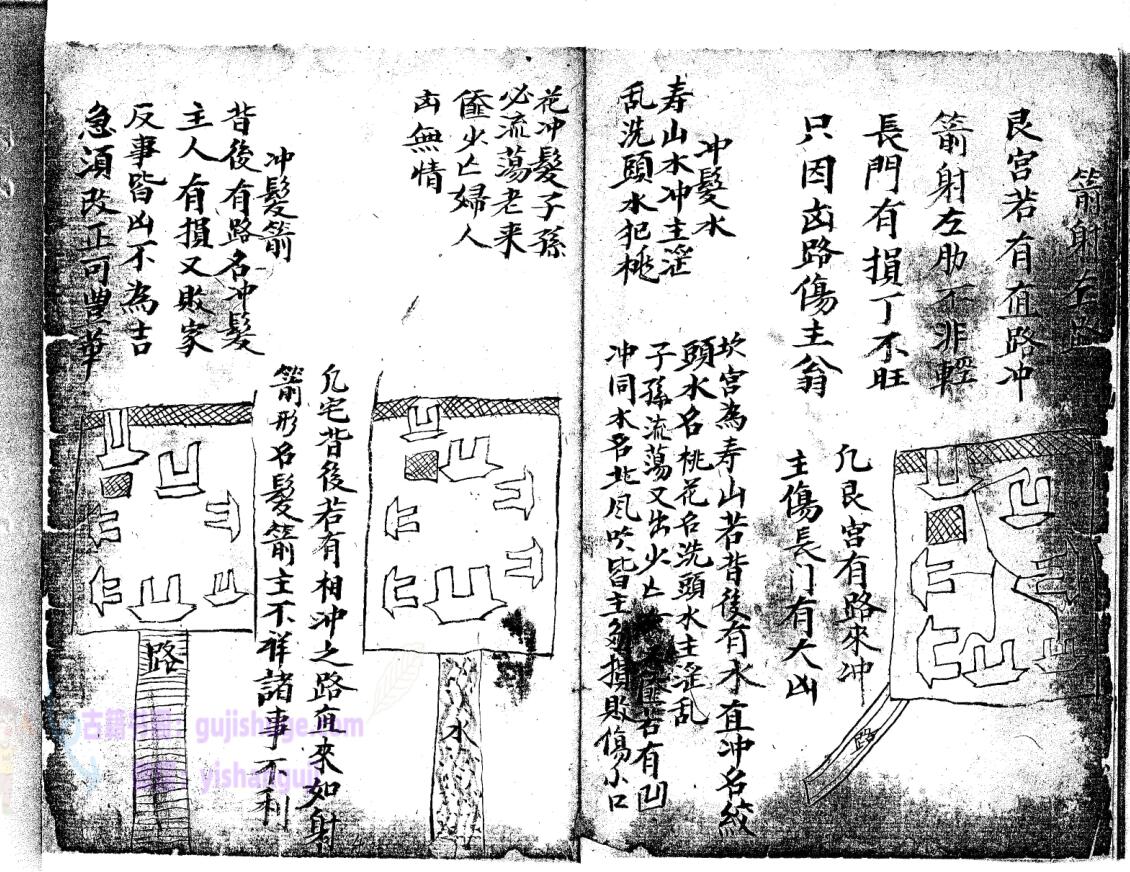 箭射左路
艮宫若有直路冲
箭射左肋不非輕
長門有損丁不旺
只因凶路傷主翁
凢艮宫有路來冲
主傷長门有大凶
路
冲髮水
寿山水冲主滛
乱洗頭水犯桃
花冲髮子孫
必流蕩老来
㐫少亡婦人
内無情
坎宫為寿山若背後有水直冲名絞
頭水名桃花名洗頭水主滛乱
子孫流蕩又出少亡
若有凹
冲同水名北风吹皆主
損敗傷小口
水
冲髮箭
背後有路名冲髮
主人有損又敗家
反事皆凶不為吉
急須改正可豐華
凢宅背後若有相冲之路直來如射
箭形名髮箭主不祥諸事不利
路
古籍书阁：gujishuge.com
yishanguji